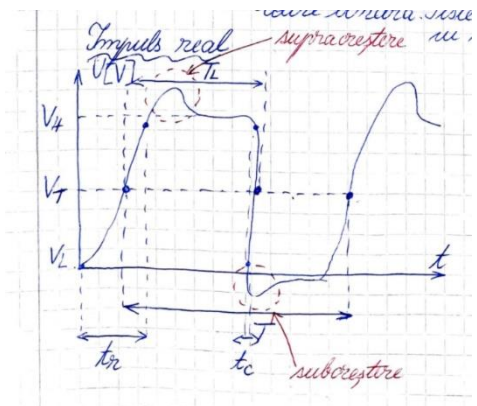 Impuls real
supracreștere
U[V]
TL
VH
VT
VL
t
tr
tc
T
subcreștere